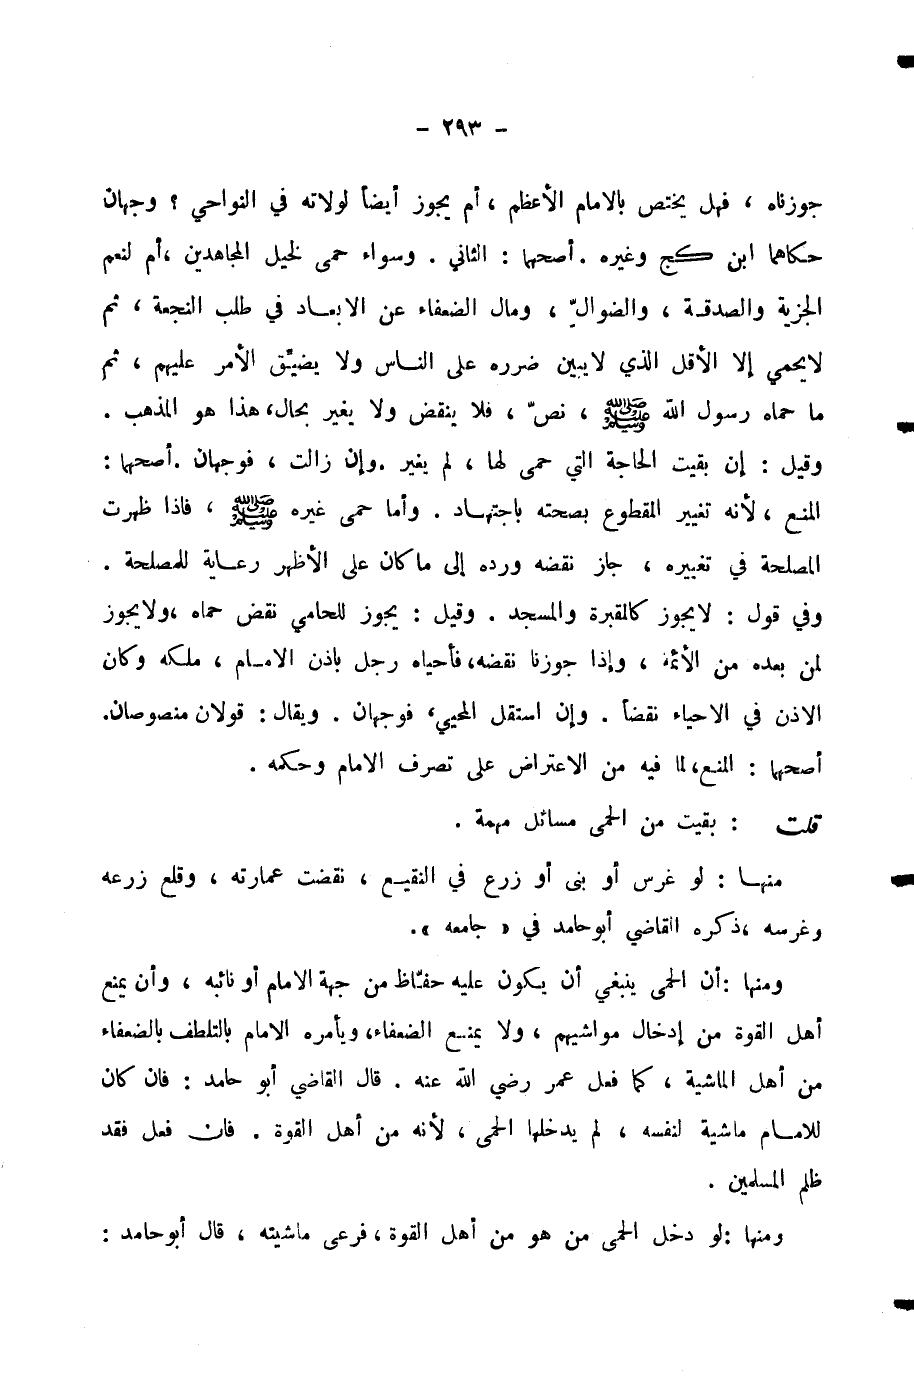 - ٢٩٣ -
جوزناه ، فهل يختص بالامام الأعظم ، أم يجوز أيضاً لولاته في النواحي ؟ وجهان
حكاهما ابن كج وغيره . أصحها : الثاني . وسواء حمى لخيل المجاهدين ، أم لنعم
الجزية والصدقة ، والضوالّ ، ومال الضعفاء عن الابعاد في طلب النجعة ، ثم
لايحمي إلا الأقل الذي لايبين ضرره على الناس ولا يضيَّق الأمر عليهم ، ثم
ما حماه رسول الله ﷺ ، نصّ ، فلا ينقض ولا يغير بحال، هذا هو المذهب .
وقيل : إن بقيت الحاجة التي حمى لها ، لم يغير . وإن زالت ، فوجهان . أصحها :
المنع ، لأنه تغيير المقطوع بصحته باجتهاد . وأما حمى غيره ﷺ ، فاذا ظهرت
المصلحة في تغييره ، جاز نقضه ورده إلى ماكان على الأظهر رعاية للمصلحة .
وفي قول : لايجوز كالمقبرة والمسجد . وقيل : يجوز للحامي نقض حماه ، ولايجوز
لمن بعده من الأئمة ، وإذا جوزنا نقضه، فأحياه رجل باذن الامام ، ملكه وكان
الاذن في الاحياء نقضاً . وإن استقل المحيي، فوجهان . ويقال : قولان منصوصان.
أصحها : المنع، لما فيه من الاعتراض على تصرف الامام وحكمه .
قلت : بقيت من الحمى مسائل مهمة .
منها : لو غرس أو بنى أو زرع في النقيع ، نقضت عمارته ، وقلع زرعه
وغرسه ، ذكره القاضي أبوحامد في « جامعه ».
ومنها : أن الحمى ينبغي أن يكون عليه حفّاظ من جهة الامام أو نائبه ، وأن يمنع
أهل القوة من إدخال مواشيهم ، ولا يمنع الضعفاء، ويأمره الامام بالتلطف بالضعفاء
من أهل الماشية ، كما فعل عمر رضي الله عنه . قال القاضي أبو حامد : فان كان
للامام ماشية لنفسه ، لم يدخلها الحمى ، لأنه من أهل القوة . فان فعل فقد
ظلم المسلمين .
ومنها : لو دخل الحمى من هو من أهل القوة ، فرعى ماشيته ، قال أبوحامد :